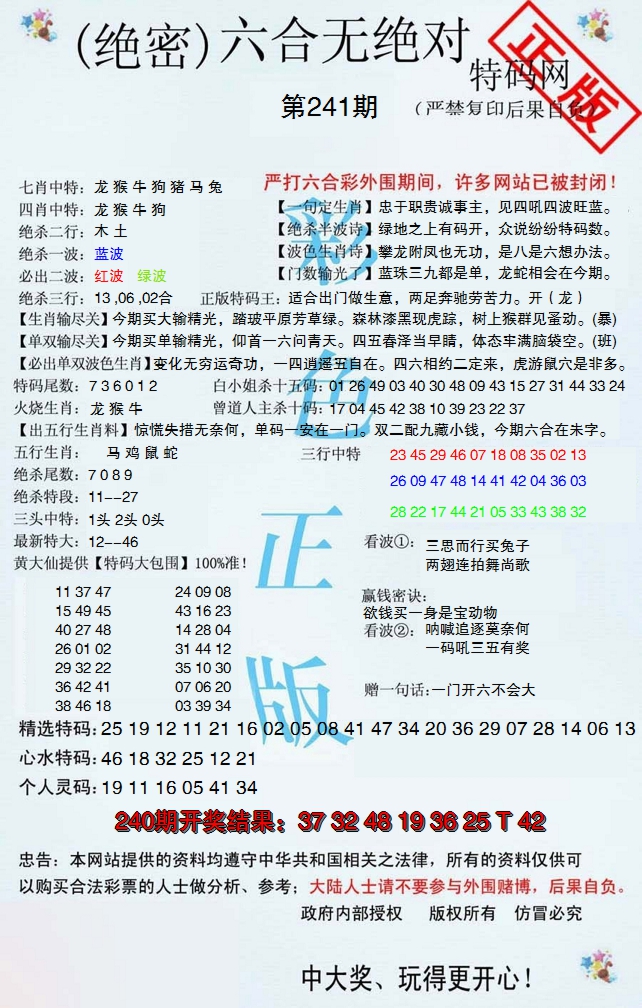 (绝密)六合无绝对
特码网
正版
第241期
(严禁复印后果自负)
七肖中特：龙猴牛狗猪马兔
严打六合彩外围期间，许多网站已被封闭！
四肖中特：龙猴牛狗
【一句定生肖】忠于职贵诚事主，见四吼四波旺蓝。
绝杀二行：木土
【绝杀半波诗】绿地之上有码开，众说纷纷特码数。
绝杀一波：蓝波
【波色生肖诗】攀龙附凤也无功，是八是六想办法。
必出二波：红波 绿波
【门数输光了】蓝珠三九都是单，龙蛇相会在今期。
绝杀三行：13 ,06 ,02合
正版特码王：适合出门做生意，两足奔驰劳苦力。开（龙）
【生肖输尽关】今期买大输精光，踏玻平原芳草绿。森林漆黑现虎踪，树上猴群见蚤动。(暴)
【单双输尽关】今期买单输精光，仰首一六问青天。四五春泽当早睛，体态牢满脑袋空。(班)
【必出单双波色生肖】变化无穷运奇功，一四逍遥五自在。四六相约二定来，虎游鼠穴是非多。
特码尾数：7 3 6 0 1 2
白小姐杀十五码：01 26 49 03 40 30 48 09 43 15 27 31 44 33 24
火烧生肖：龙猴牛
曾道人主杀十码：17 04 45 42 38 10 39 23 22 37
【出五行生肖料】惊慌失措无奈何，单码一安在一门。双二配九藏小钱，今期六合在朱字。
五行生肖：马鸡鼠蛇
三行中特 23 45 29 46 07 18 08 35 02 13
绝杀尾数：7 0 8 9
26 09 47 48 14 41 42 04 36 03
绝杀特段：11--27
三头中特：1头 2头 0头
28 22 17 44 21 05 33 43 38 32
最新特大：12--46
看波①：三思而行买兔子
两翅连拍舞尚歌
黄大仙提供【特码大包围】100%准！
11 37 47 24 09 08
15 49 45 43 16 23
40 27 48 14 28 04
26 01 02 31 44 12
29 32 22 35 10 30
36 42 41 07 06 20
38 46 18 03 39 34
赢钱密诀：
欲钱买一身是宝动物
看波②：呐喊追逐莫奈何
一码吼三五有奖
赠一句话:一门开六不会大
精选特码：25 19 12 11 21 16 02 05 08 41 47 34 20 36 29 07 28 14 06 13
心水特码：46 18 32 25 12 21
个人灵码：19 11 16 05 41 34
240期开奖结果：37 32 48 19 36 25 T 42
忠告：本网站提供的资料均遵守中华共和国相关之法律，所有的资料仅供可
以购买合法彩票的人士做分析、参考；大陆人士请不要参与外围赌博，后果自负。
政府内部授权 版权所有 仿冒必究
中大奖、玩得更开心！
彩色正版